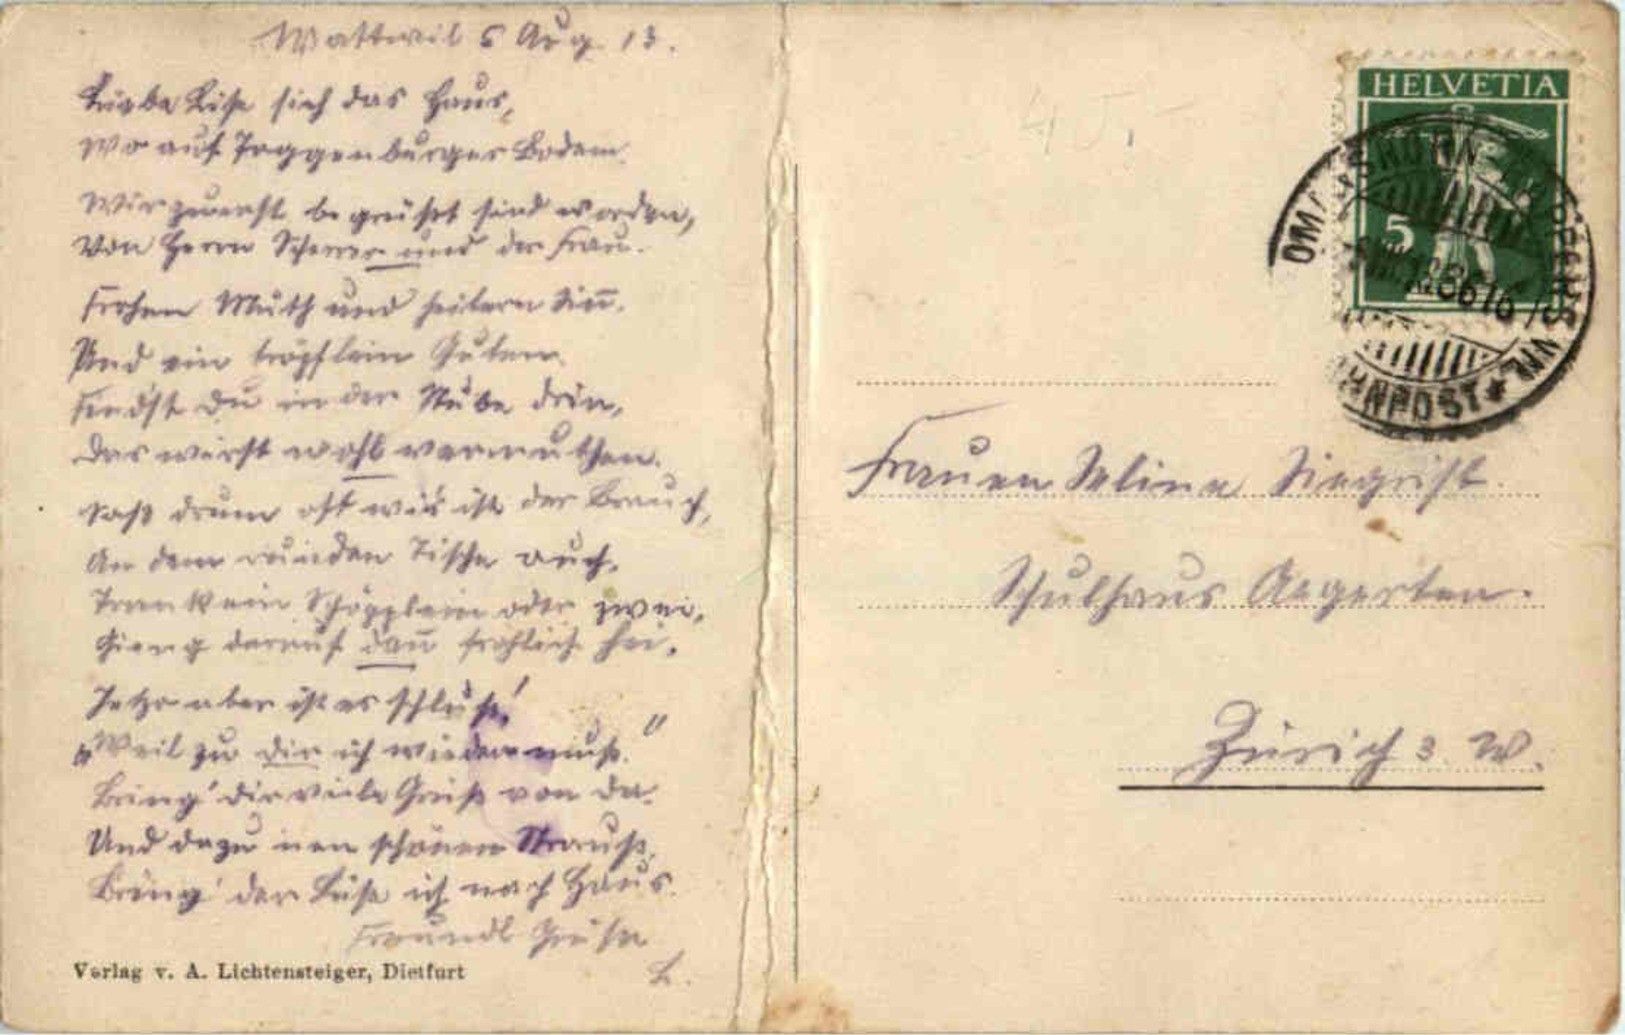 Wattwil 5 Aug. 13.
Liebe Lise sieh das Haus,
Wo auf Toggenburger Boden
Wir zuerst begrüsst sind worden,
Von Herrn Scherrer und der Frau.
Frohen Muth und heitern Siñ.
Und ein tröpflein Guten
Findst Du in der Stube drin,
Das wirst wohl vermuthen.
Saß drum oft wies ist der Brauch,
An dem runden Tische auch.
Trank ein Schöpplein oder zwei,
Gieng darauf dañ fröhlich hei.
Jetzo aber ist es schluß!
„Weil zu dir ich wieder muß."
Bring' dir viele Grüß von da.
Und dazu nen schönen Strauß,
Bring' der Lise ich nach Haus.
Freundl Grüße
L.
Verlag v. A. Lichtensteiger, Dietfurt
45,-
HELVETIA
5
ROMANSHORN
VIII.13
8616
BAHNPOST ★
Frauen Selina Siegrist.
Schulhaus Aegerten.
Zürich 3. W.